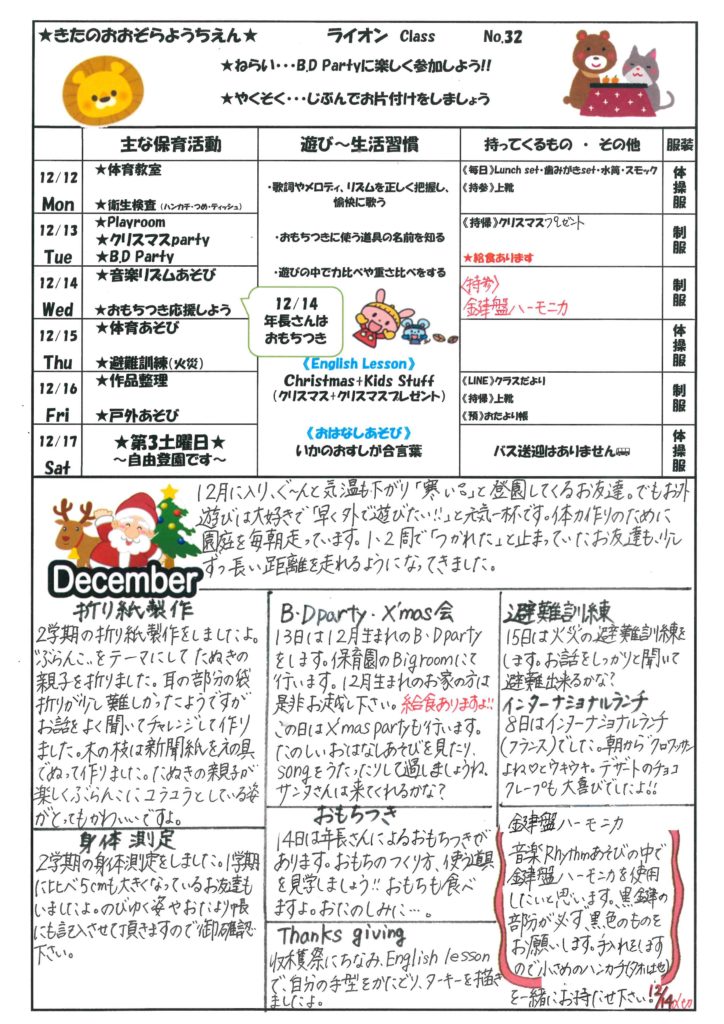 ★きたのおおぞらようちえん★ ライオン Class No.32
★ねらい・・・B.D Partyに楽しく参加しよう!!
★やくそく・・・じぶんでお片付けをしましょう
主な保育活動 遊び～生活習慣 持ってくるもの ・ その他 服装
12/12 Mon
★体育教室
★衛生検査(ハンカチ・つめ・ティッシュ)
《毎日》Lunch set・歯みがきset・水筒・スモック
《持参》上靴
体操服
12/13 Tue
★Playroom
★クリスマスparty
★B.D Party
《持帰》クリスマスプレゼント
★給食あります
制服
12/14 Wed
★音楽リズムあそび
★おもちつき応援しよう
〈持参〉
鍵盤ハーモニカ
制服
12/15 Thu
★体育あそび
★避難訓練(火災)
体操服
12/16 Fri
★作品整理
★戸外あそび
《LINE》クラスだより
《持帰》上靴
《預》おたより帳
制服
12/17 Sat
★第3土曜日★
～自由登園です～
バス送迎はありません
体操服
・歌詞やメロディ、リズムを正しく把握し、
愉快に歌う
・おもちつきに使う道具の名前を知る
・遊びの中で力比べや重さ比べをする
12/14
年長さんは
おもちつき
《English Lesson》
Christmas+Kids Stuff
(クリスマス+クリスマスプレゼント)
《おはなしあそび》
いかのおすしが合言葉
December
12月に入り、ぐ～んと気温も下がり「寒いる」と登園してくるお友達。でもお外
遊びは大好きで「早く外で遊びたい!!」と元気一杯です。体力作りのために
園庭を毎朝走っています。1・2周で「つかれた」と止まっていたお友達も、少し
ずつ長い距離を走れるようになってきました。
折り紙製作
2学期の折り紙製作をしましたよ。
"ぶらんこ"をテーマにして たぬきの
親子を折りました。耳の部分の袋
折りが少し難しかったようですが
お話をよく聞いてチャレンジして作り
ました。木の枝は新聞紙をえの具
でぬって作りました。たぬきの親子が
楽しくぶらんこにユラユラとしている姿
がとってもかわいいですよ。
身体測定
2学期の身体測定をしました。1学期
に比べ5cmも大きくなっているお友達も
いましたよ。のびゆく姿やおたより帳
にも記入させて頂きますので御確認
下さい。
B・Dparty・X'mas会
13日は12月生まれのB・Dparty
をします。保育園のBigroomにて
行います。12月生まれのお家の方は
是非お越し下さい。給食ありますよ!!
この日はX'mas partyも行います。
たのしいおはなしあそびを見たり、
songをうたったりして過しましょうね。
サンタさんは来てくれるかな?
おもちつき
14日は年長さんによるおもちつきが
あります。おもちのつくり方、使う道具
を見学しましょう!! おもちも食べ
ますよ。おたのしみに…。
Thanks giving
収穫祭にちなみ、English lesson
で、自分の手型をかたどり、ターキーを描き
ましたよ。
避難訓練
15日は火災の避難訓練を
します。お話をしっかりと聞いて
避難出来るかな?
インターナショナルランチ
8日はインターナショナルランチ
(フランス)でした。朝から「クロワッサン
よね♡とウキウキ。デザートのチョコ
クレープも大喜びでしたよ!!
鍵盤ハーモニカ
音楽Rhythmあそびの中で
鍵盤ハーモニカを使用
したいと思います。黒鍵の
部分が必ず、黒色のものを
お願いします。手入れをします
ので小さめのハンカチ(タオル地)
を一緒にお持たせ下さい。
12/14